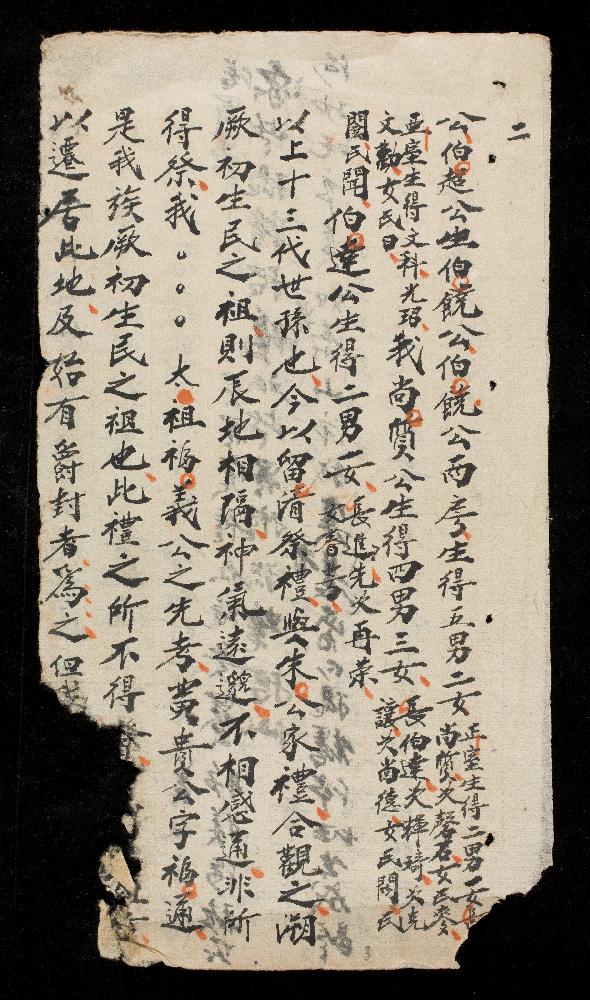 二
公伯超公生伯饒公伯饒公両房生得五男二女 正室生得二男一女長尚質次磬石女民麥
亞室生得文科光珆 我尚質公生得四男三女 長伯達次樺琦次克讓次尚德女民閣民
文勸女民日
關民聞 伯達公生得二男一女 長進先次再荣女春芳
以上十三代世孫也今以留清祭禮與朱公家禮合觀之溯
厥初生民之祖則辰地相隔神氣遠邈不相感通非所
得祭我。。。太祖福義公之先考黄貴公字福通
是我族厥初生民之祖也此禮之所不得
以遷居此地及始有爵封者為之但